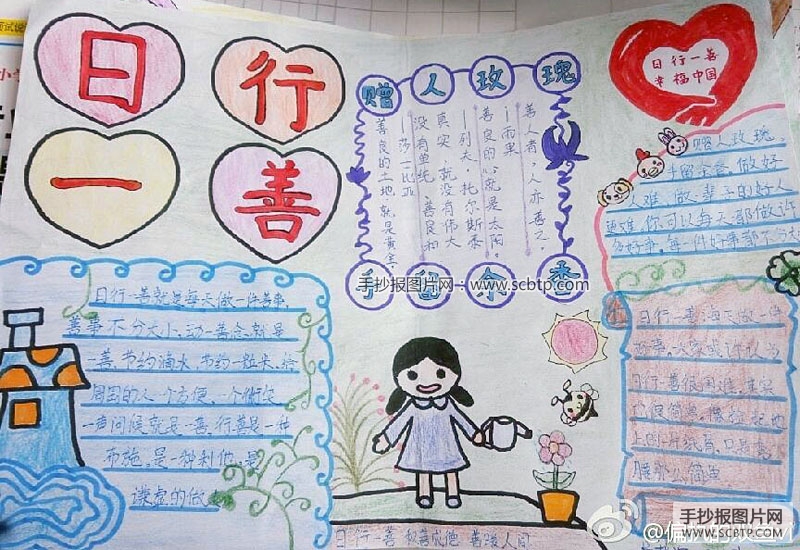 日行
一善
赠人玫瑰
善人者,人亦善之。
——雨果
善良的心就是太阳。
——列夫·托尔斯泰
真实,就没有伟大
没有单纯、善良和
——莎士比亚
善良的土地就是黄金
手留余香
日行一善
幸福中国
赠人玫瑰,
手留余香。做好
人难,做一辈子的好人
更难,你可以每天都做许
多好事,每一件好事都不分大
日行一善就是每天做一件善事,
善事不分大小,动一善念就是
一善,节约滴水、节约一粒米、给
周围的人一个方便、一个微笑
一声问候就是一善,行善是一种
布施,是一种利他,是
谦虚的做
日行一善,每天做一件
日行一善很困难,其实
很简单,像往起地
上的一片纸屑,只需弯
腰,那么简单
日行一善 积善成德 善暖人间
手抄报图片网:www.scbtp.com
手抄报图片网
WWW.SCBTP.COM